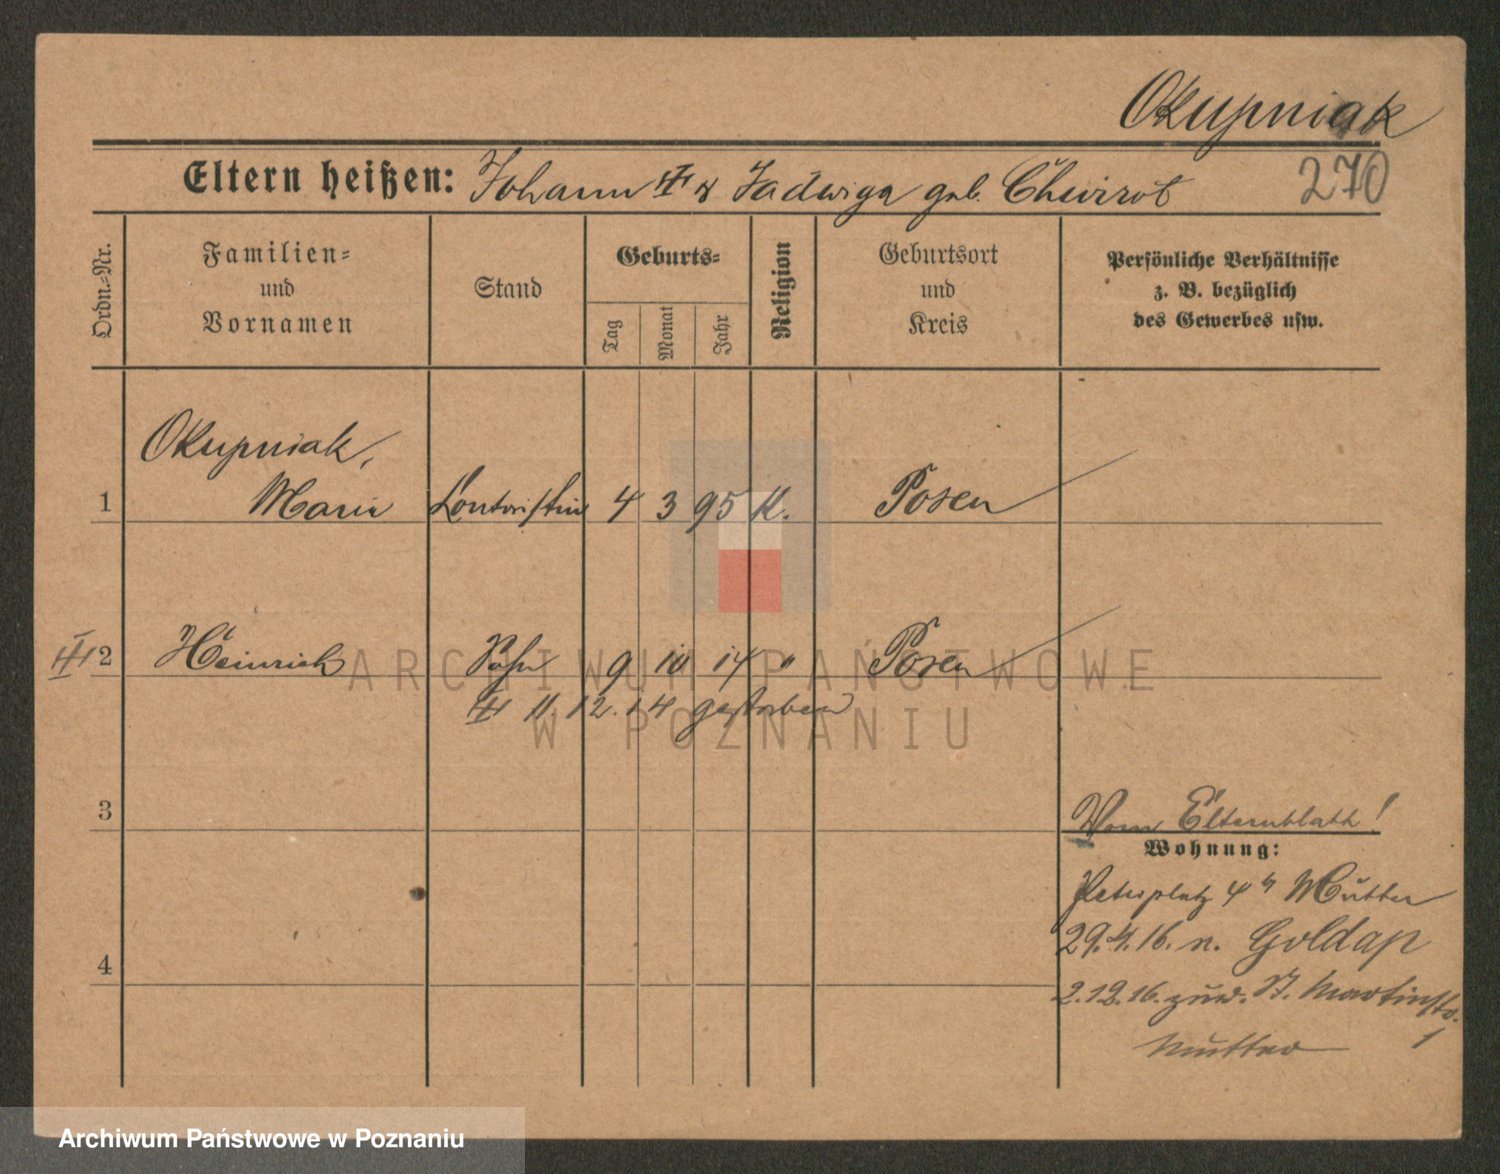 Okupniak
270
Eltern heißen: Johann & Jadwiga geb. Chwirot
Ordn.-Nr.
Familien- und Vornamen
Stand
Geburts-
Tag
Monat
Jahr
Religion
Geburtsort und Kreis
Persönliche Verhältnisse z. B. bezüglich des Gewerbes usw.
Okupniak,
1 Marie Kontoristin 4 3 95 K. Posen
2 Heinrich Sohn 9 10 14 " Posen
11.12.14 gestorben
3
Vom Elternblatt!
Wohnung:
Petriplatz 4 Mutter
29.4.16. n. Goldap
4
2.12.16. zurü. St. Martinstr. 1
Mutter
ARCHIWUM PAŃSTWOWE
W POZNANIU
Archiwum Państwowe w Poznaniu